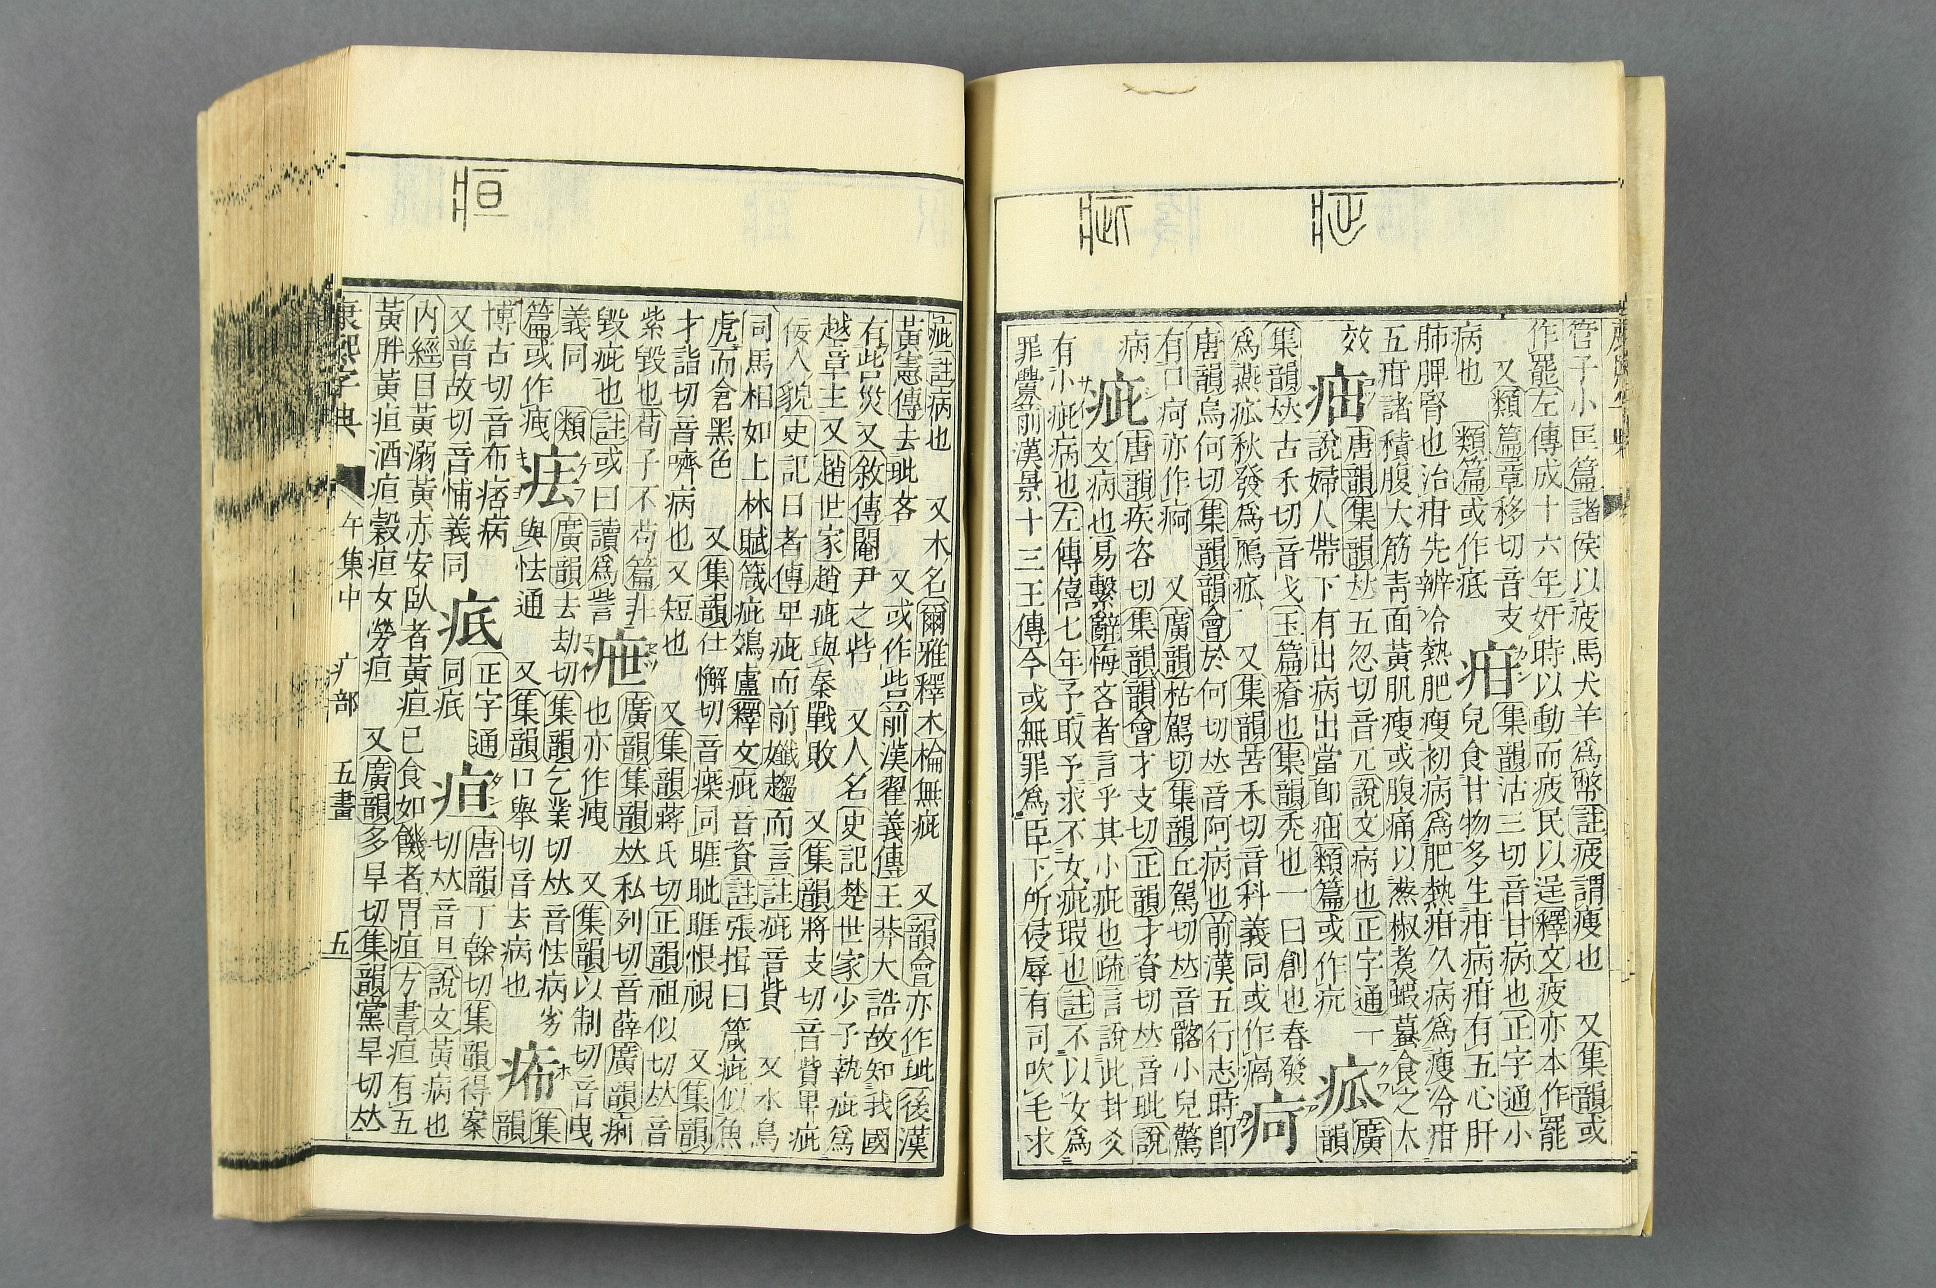 管子小匡篇諸侯以疲馬犬羊爲幣註疲謂瘦也　又集韻或
作罷左傳成十六年奸時以動而疲民以逞釋文疲亦本作罷
又類篇章移切音支　疳　集韻沽三切音甘病也正字通小
病也　類篇或作疷　兒食甘物多生疳病疳有五心肝
肺脾腎也治疳先辨冷熱肥瘦初病爲肥熱疳久病爲瘦冷疳
五疳諸積腹大筋靑面黃肌瘦或腹痛以蒸椒煮蝦蟇食之太
效　疽　唐韻集韻𠀤五忽切音兀說文病也正字通一
說婦人帶下有出病出當卽疽類篇或作疨　㽿　廣韻
集韻𠀤古禾切音戈玉篇瘡也集韻禿也一曰創也春發
爲燕㽿秋發爲鴈㽿　又集韻苦禾切音科義同或作㾧　疴
唐韻烏何切集韻韻會於何切𠀤音阿病也前漢五行志時卽
有口疴亦作痾　又廣韻枯駕切集韻丘駕切𠀤音髂小兒驚
病　疵　唐韻疾咨切集韻韻會才支切正韻才資切𠀤音玼說
文病也易繫辭悔吝者言乎其小疵也疏言說此卦爻
有小疵病也左傳僖七年予取予求不女疵瑕也註不以女爲
罪釁前漢景十三王傳今或無罪爲臣下所侵辱有司吹毛求
疵註病也　又木名爾雅釋木棆無疵　又韻會亦作玼後漢
黃憲傳去玼吝　又或作啙前漢翟義傳王莽大誥故知我國
有呰災又敘傳閹尹之呰　又人名史記楚世家少子執疵爲
越章王又趙世家趙疵與秦戰敗　又集韻將支切音貲卑疵
佞人貌史記日者傳卑疵而前孅趨而言註疵音貲　又水鳥
司馬相如上林賦箴疵鵁盧釋文疵音資註張揖曰箴疵似魚
虎而倉黑色　又集韻仕懈切音㾹同睚眦睚恨視　又集韻
才詣切音嚌病也又短也　又集韻蔣氏切正韻祖似切𠀤音
紫毀也荀子不苟篇非　疶　廣韻集韻𠀤私列切音薛廣韻痢
毀疵也註或曰讀爲訾　也亦作㾐　又集韻以制切音曳
義同　類　㾀　廣韻去劫切集韻乞業切𠀤音怯病劣
篇或作㾐　與怯通　又集韻口舉切音去病也　㾈　集
博古切音布痞病　疷　正字通　疸　唐韻丁榦切集韻得案　韻
又普故切音怖義同　同疧　切𠀤音旦說文黃病也
内經目黃溺黃赤安臥者黃疸已食如饑者胃疸方書疸有五
黃胖黃疸酒疸穀疸女勞疸　又廣韻多旱切集韻黨旱切𠀤
康熙字典　午集中　疒部　五畫　五